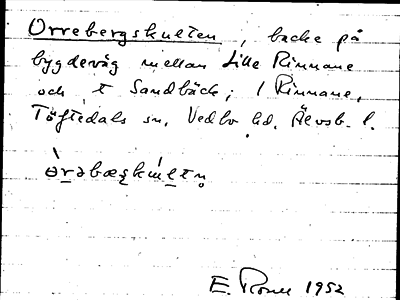 Orrebergskulten, backe på
bygdeväg mellan Lilla Rinnane
och t Sandbäck; / Rinnane,
Töftedals sn, Vedbo hd. Älvsb. l.
E. Rosell 1952